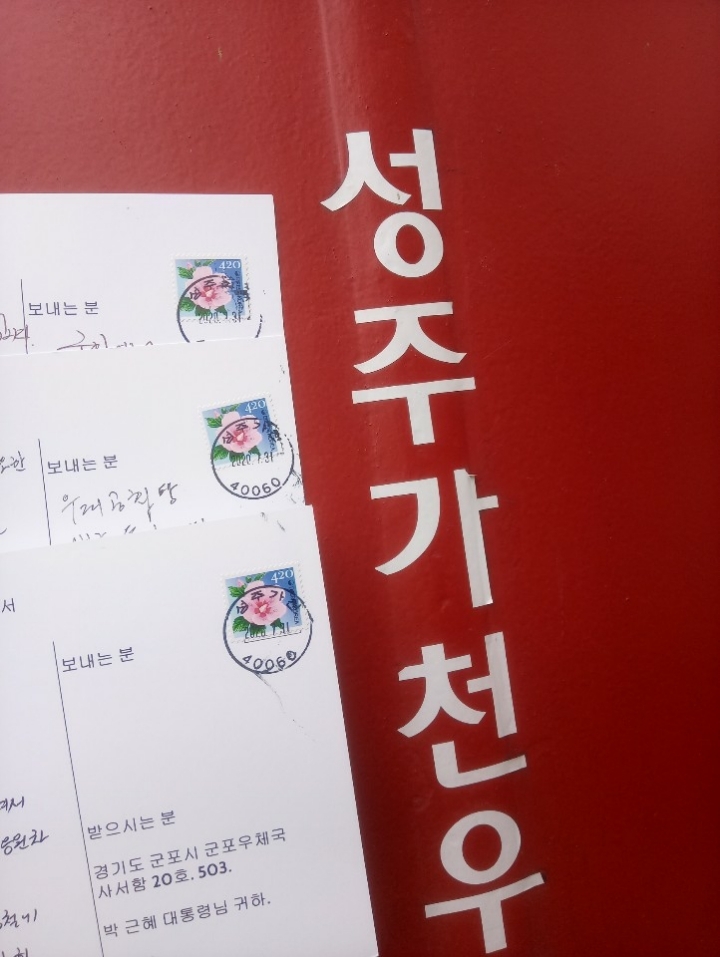 성주가천우
420
2020.7.31
보내는 분
420
성주가
2020.7.31
40060
보내는 분
우리공화당
서
420
성주가천
2020.7.31
40060
보내는 분
응원차
받으시는 분
경기도 군포시 군포우체국
사서함 20호. 503.
박 근혜 대통령님 귀하.